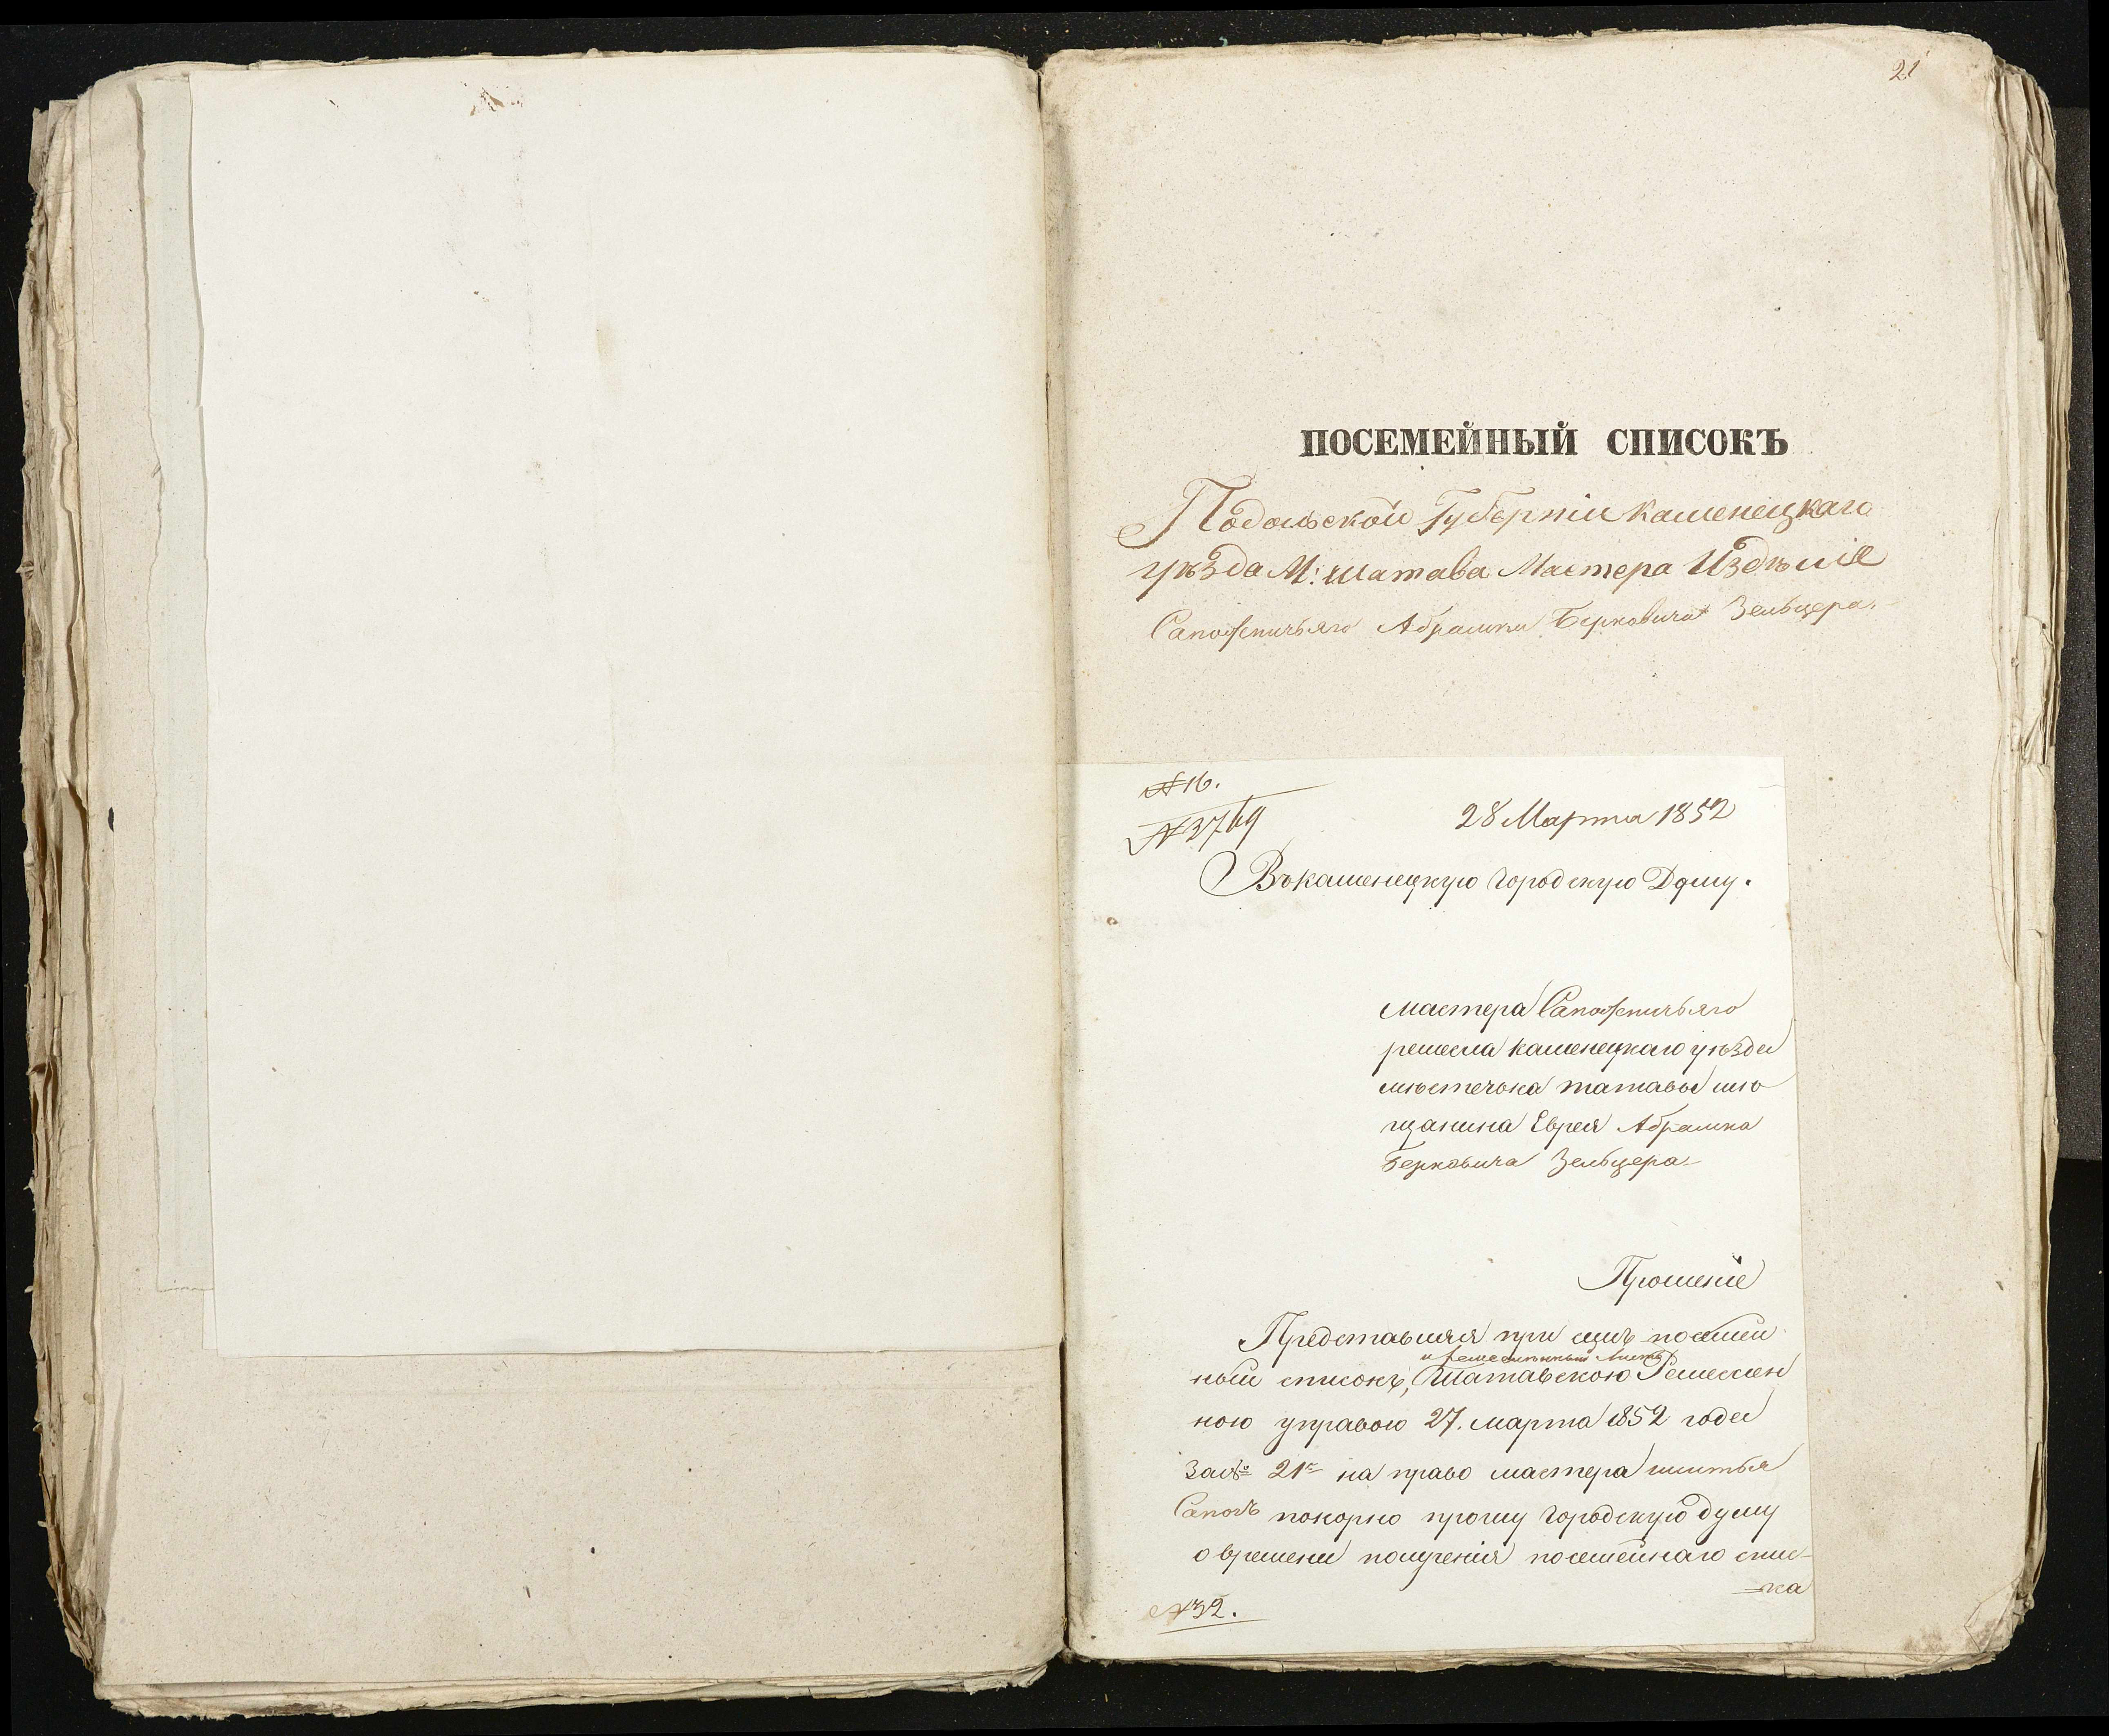 21
ПОСЕМЕЙНЫЙ СПИСОКЪ
Подольской Губерніи Каменецкаго
уѣзда М: Шатава Мастера Издѣлія
Сапожничьяго Абрамки Берковича Зельцера.
№ 16.
№ 3769
28 Марта 1852
Въ Каменецкую Городскую Думу.
Мастера Сапожничьяго
ремесла Каменецкаго уѣзда
мѣстечька Шатавы мѣ
щанина Еврея Абрамка
Берковича Зельцера
Прошеніе
Представляя при семъ посемей
и ремесленный листъ
ный списокъ, Шатавскою Ремеслен
ною управою 27. марта 1852 года
За № 21 на право мастера шитья
Сапогъ покорно прошу Городскую думу
о времени полученія посемейнаго спис-
ка
№ 32.